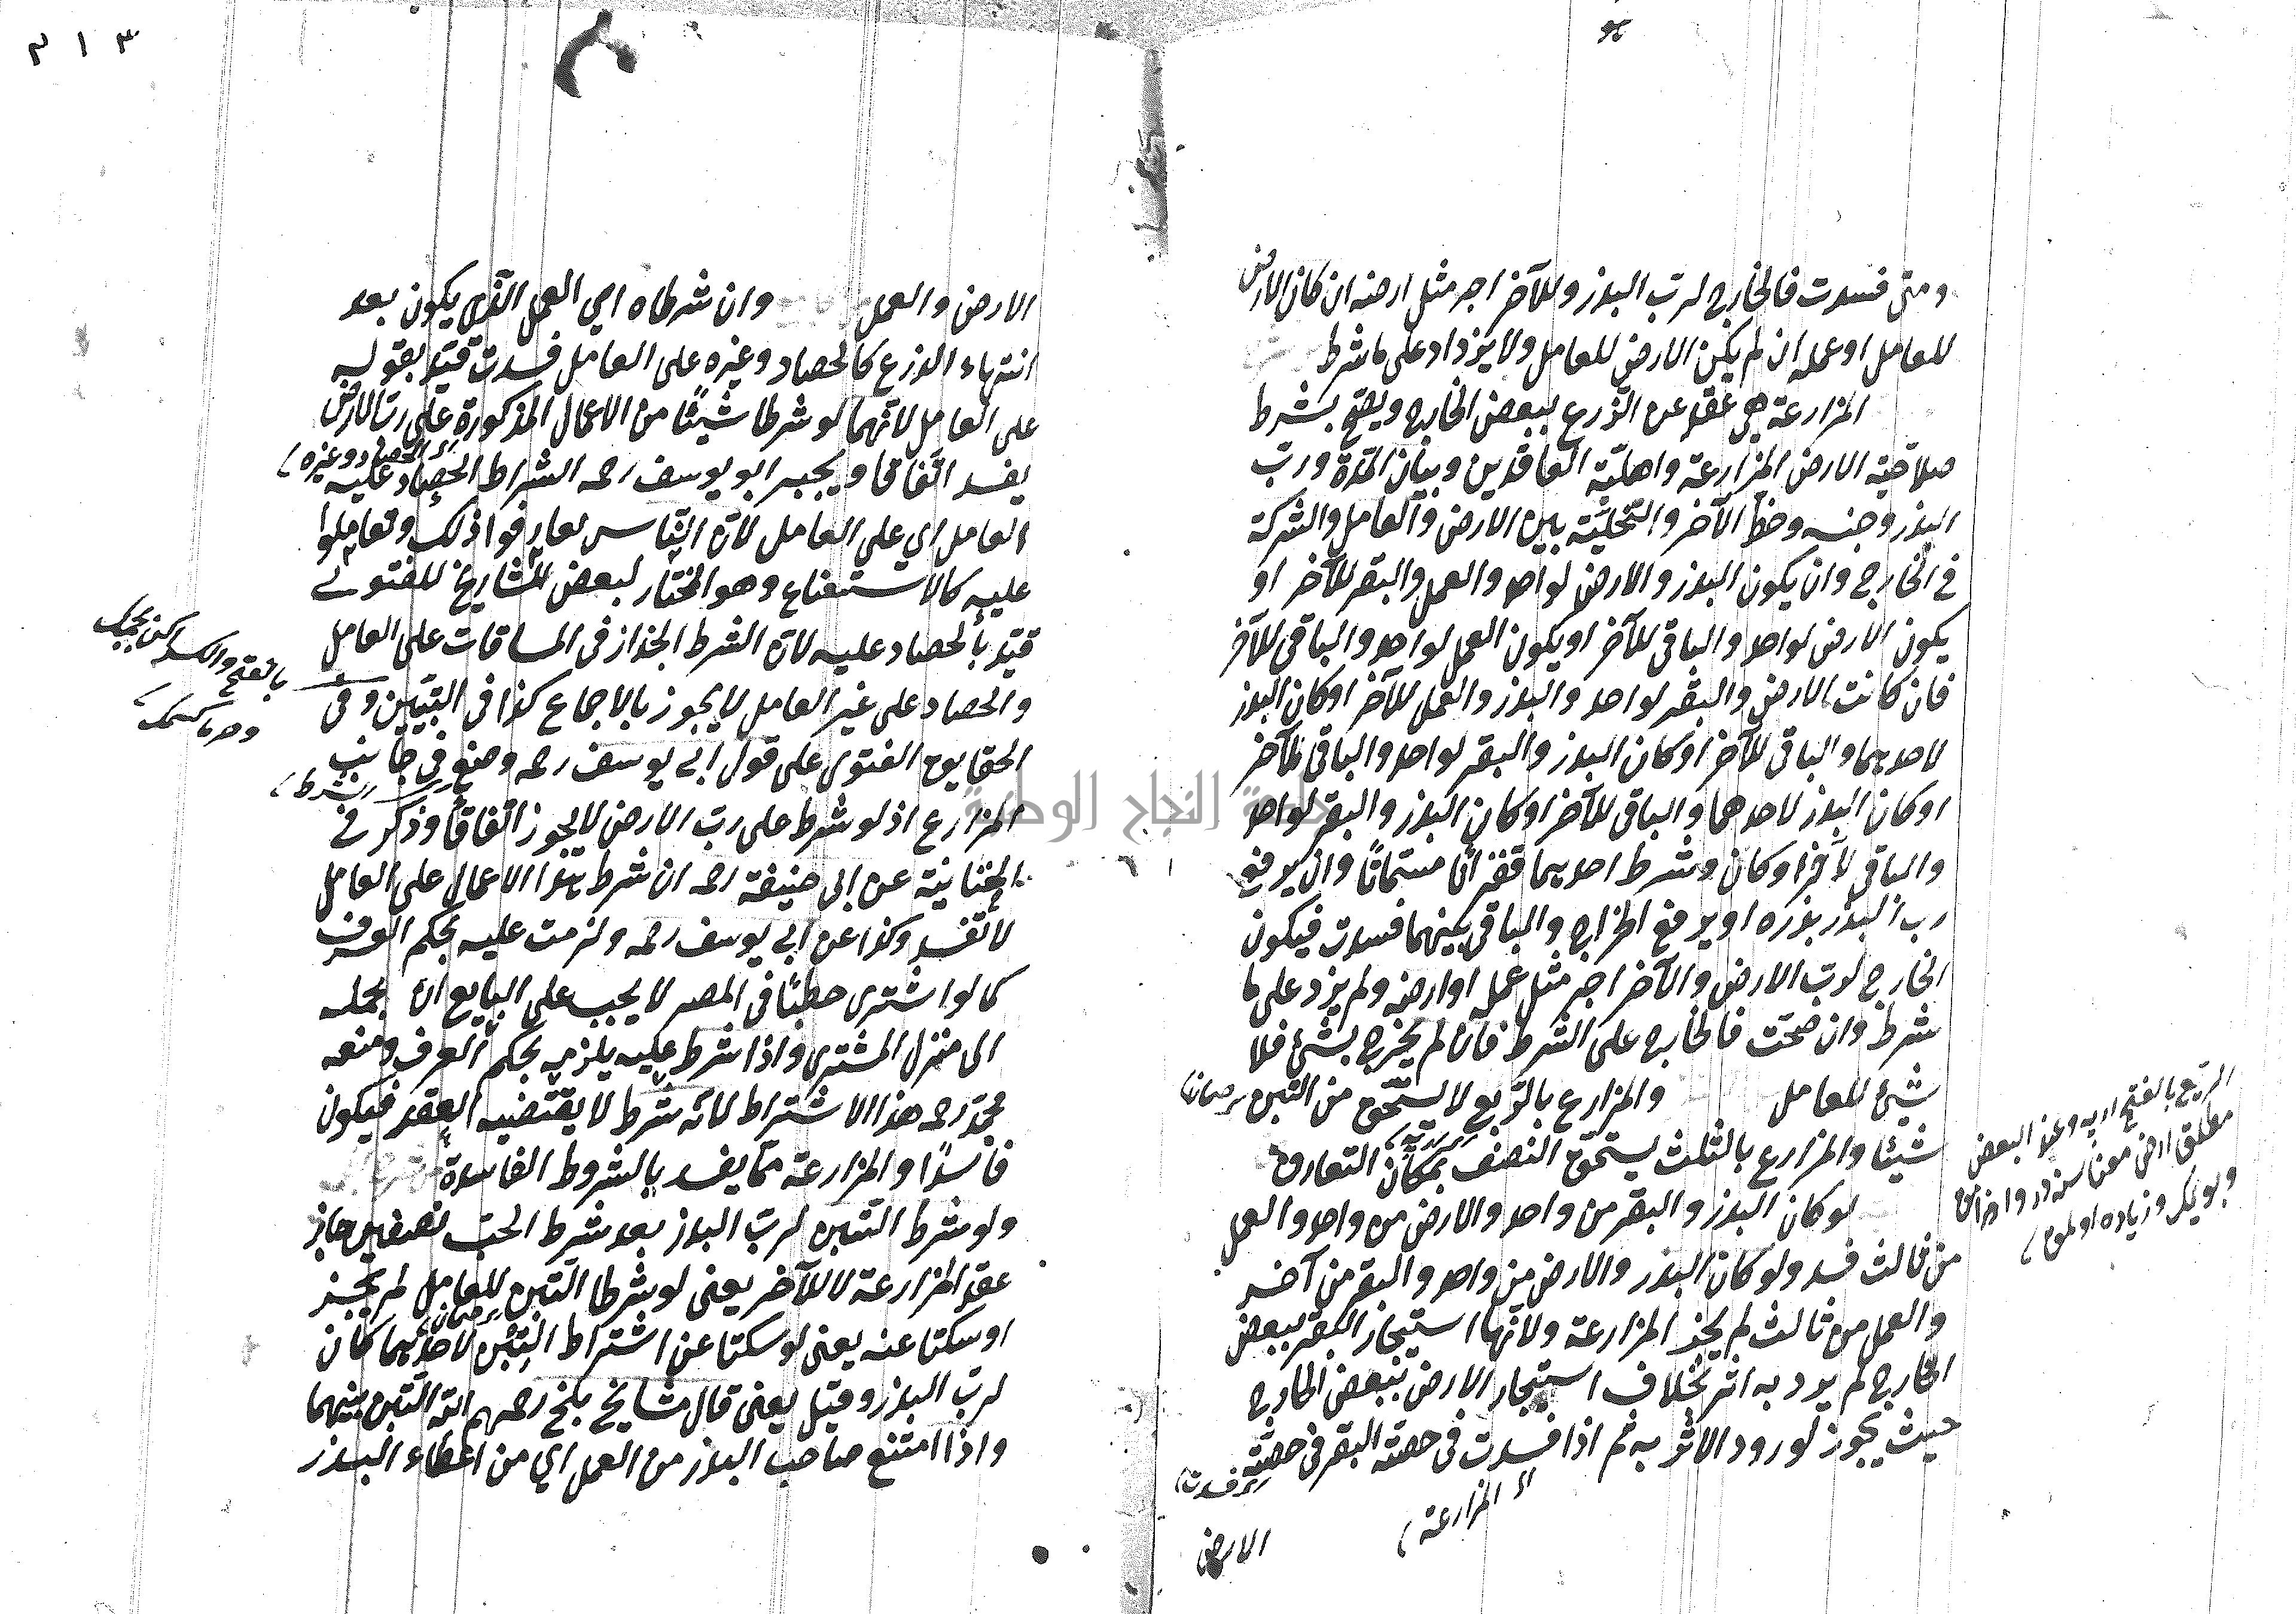 ومتى فسدت فالخارج لرب البذر وللآخر اجر مثل ارضه ان كان الارض
للعامل او عمله ان لم يكن الارض للعامل ولا يزداد على ما شرط
المزارعة هي عقد عن الزرع ببعض الخارج ويصح بشرط
صلاحية الارض المزارعة واهلية العاقدين وبيان المدة ورب
البذر وجنسه وحظ الآخر والتخلية بين الارض والعامل والشركة
في الخارج وان يكون البذر والارض لواحد والعمل والبقر للآخر او
يكون الارض لواحد والباقى للآخر او يكون العمل لواحد والباقى للآخر
فان كانت الارض والبقر لواحد والبذر والعمل للآخر او كان البذر
لاحديهما والباقى للآخر او كان البذر والبقر لواحد والباقى للآخر
او كان البذر لاحدهما والباقى للآخر او كان البذر والبقر لواحد
والباقى لآخر او كان وشرط احديهما قفزانا مستماتا وان يرفع
رب البذر بذره او يرفع الخراج والباقى بينهما فسدت فيكون
الخارج لرب الارض والآخر اجر مثل عمله او ارضه ولم يزد على ما
شرط وان صحت فالخارج على الشرط فان لم يخرج بشئ فلا
شئ للعامل والمزارع بالربع لا يستحق من التبن صمان
شيئا والمزارع بالثلث يستحق النصف بمكان التعارف
لو كان البذر والبقر من واحد والارض من واحد والعمل
من ثالث فسد ولو كان البذر والارض من واحد والبقر من آخر
والعمل من ثالث لم يجز المزارعة ولانها استيجار البقر ببعض
الخارج لم يرد به اثر بخلاف استيجار الارض ببعض الخارج
حيث يجوز لورود الاثر به ثم اذا فسدت فى حصته البقر فى حصته
فسدت
المزارعة
الارض
الربع بالفتح
وعند البعض
مطلق ارض
٣١٣
الارض والعمل وان شرطاه اي العمل الذى يكون بعد
انتهاء الزرع كالحصاد وغيره على العامل فسدت قيد بقوله
على العامل لانهما لو شرطا شيئا من الاعمال المذكورة على رب الارض
الحصاد وغيره
يفسد اتفاقا ويجبر ابو يوسف رحمه الشراط الحصاد عليه
العامل اي على العامل لان الناس تعارفوا ذلك وتعاملوا
عليه كالاستصناع وهو المختار لبعض المشايخ للفتوى
قيد بالحصاد عليه لان الشرط الجذاذ فى المساقات على العامل
والحصاد على غير العامل لا يجوز بالاجماع كذا فى التبيين وفى
الحقايق الفتوى على قول ابى يوسف رحمه وضع فى جانب
الشرط
المزارع اذ لو شرط على رب الارض لا يجوز اتفاقا وذكر فى
الخنانية عن ابى حنيفة رحمه ان شرط هذا الاعمال على العامل
لا تفسد وكذا عن ابى يوسف رحمه ولزمت عليه بحكم العرف
كما لو اشترى حطبا فى المصر لا يجب على البايع ان يحمله
الى منزل المشترى واذا شرط عليه يلزمه بحكم العرف ومنعه
محمد رحمه هذا الاشتراط لانه شرط لا يقتضيه العقد فيكون
فاسدا والمزارعة مما يفسد بالشروط الفاسدة
ولو شرط التبن لرب البذر بعد شرط الحب نصفين جاز
عقد المزارعة لا للآخر يعنى لو شرطا التبن للعامل لم يجز
صمان
او سكتا عنه يعنى لو سكتا عن اشتراط التبن لاحديهما كان
لرب البذر وقيل يعنى قال مشايخ بلخ رحمهم الله التبن بينهما
واذا امتنع صاحب البذر من العمل اي من اعطاء البذر
بالفتح والكسر
جامعة النجاح الوطنية